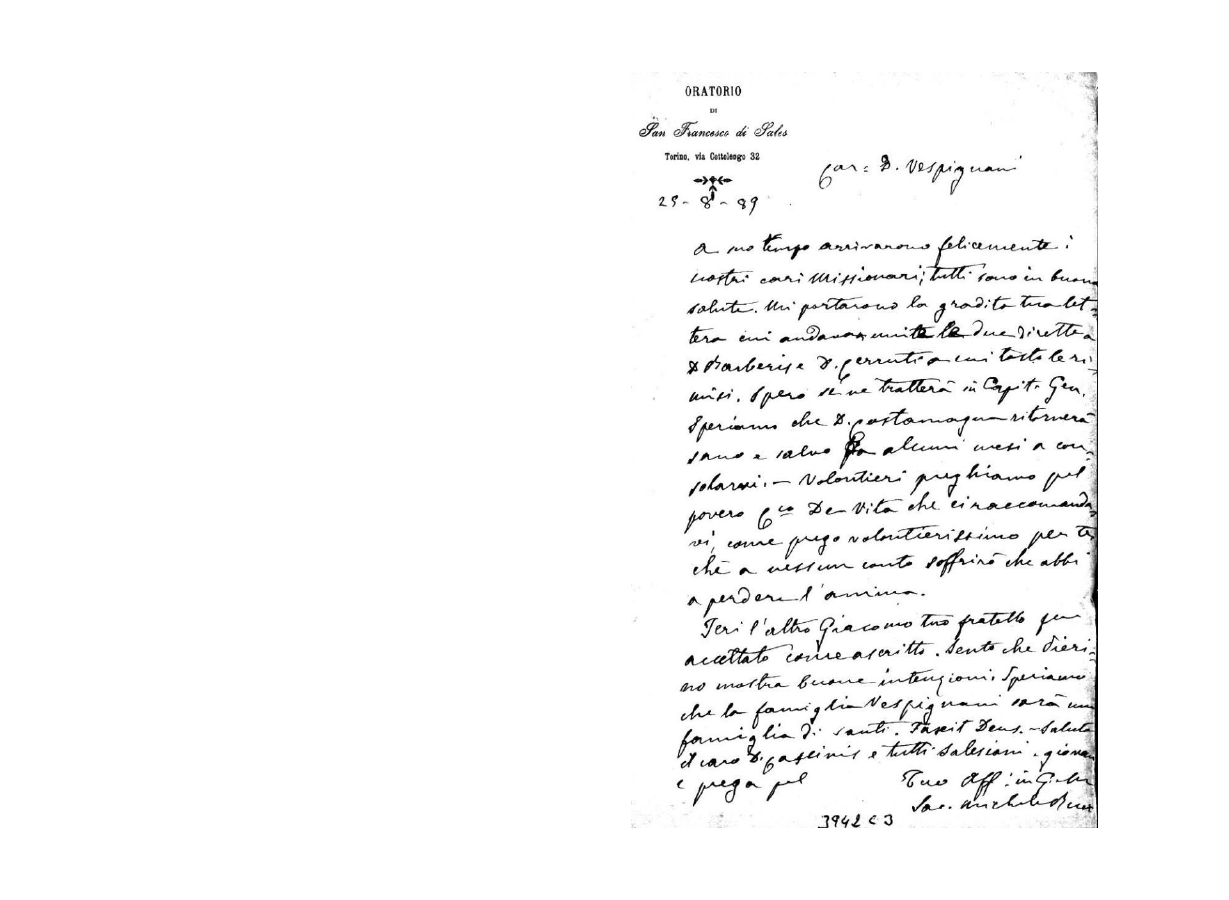 ORATORIO
DI
San Francesco di Sales
Torino, via Cottolengo 32
25-8-89
Car: D. Vespignani
A suo tempo arrivarono felicemente i
nostri cari Missionari; tutti sono in buona
salute. Mi portarono la gradita tua let-
tera cui andavan unite le due dirette a
D Barberis e D. Cerruti a cui tosto le ri-
misi. Spero se ne tratterà in Capit. Gen.
Speriamo che D. Costamagna ritornerà
sano e salvo fra alcuni mesi a con-
solarvi. - Volontieri preghiamo pel
povero Cco De Vita che ci raccomanda-
vi, come prego volontierissimo per te
chè a nessun conto soffrirò che abbi
a perdere l'anima.
Ieri l'altro Giacomo tuo fratello fu
accettato come ascritto. Sento che Pieri-
no mostra buone intenzioni. Speriamo
che la famiglia Vespignani sarà una
famiglia di santi. Faxit Deus. - Saluta
il caro D. Cassinis e tutti Salesiani, giovani
e prega pel
Tuo Aff: in G. e M.
Sac. Michele Rua
3942 C 3